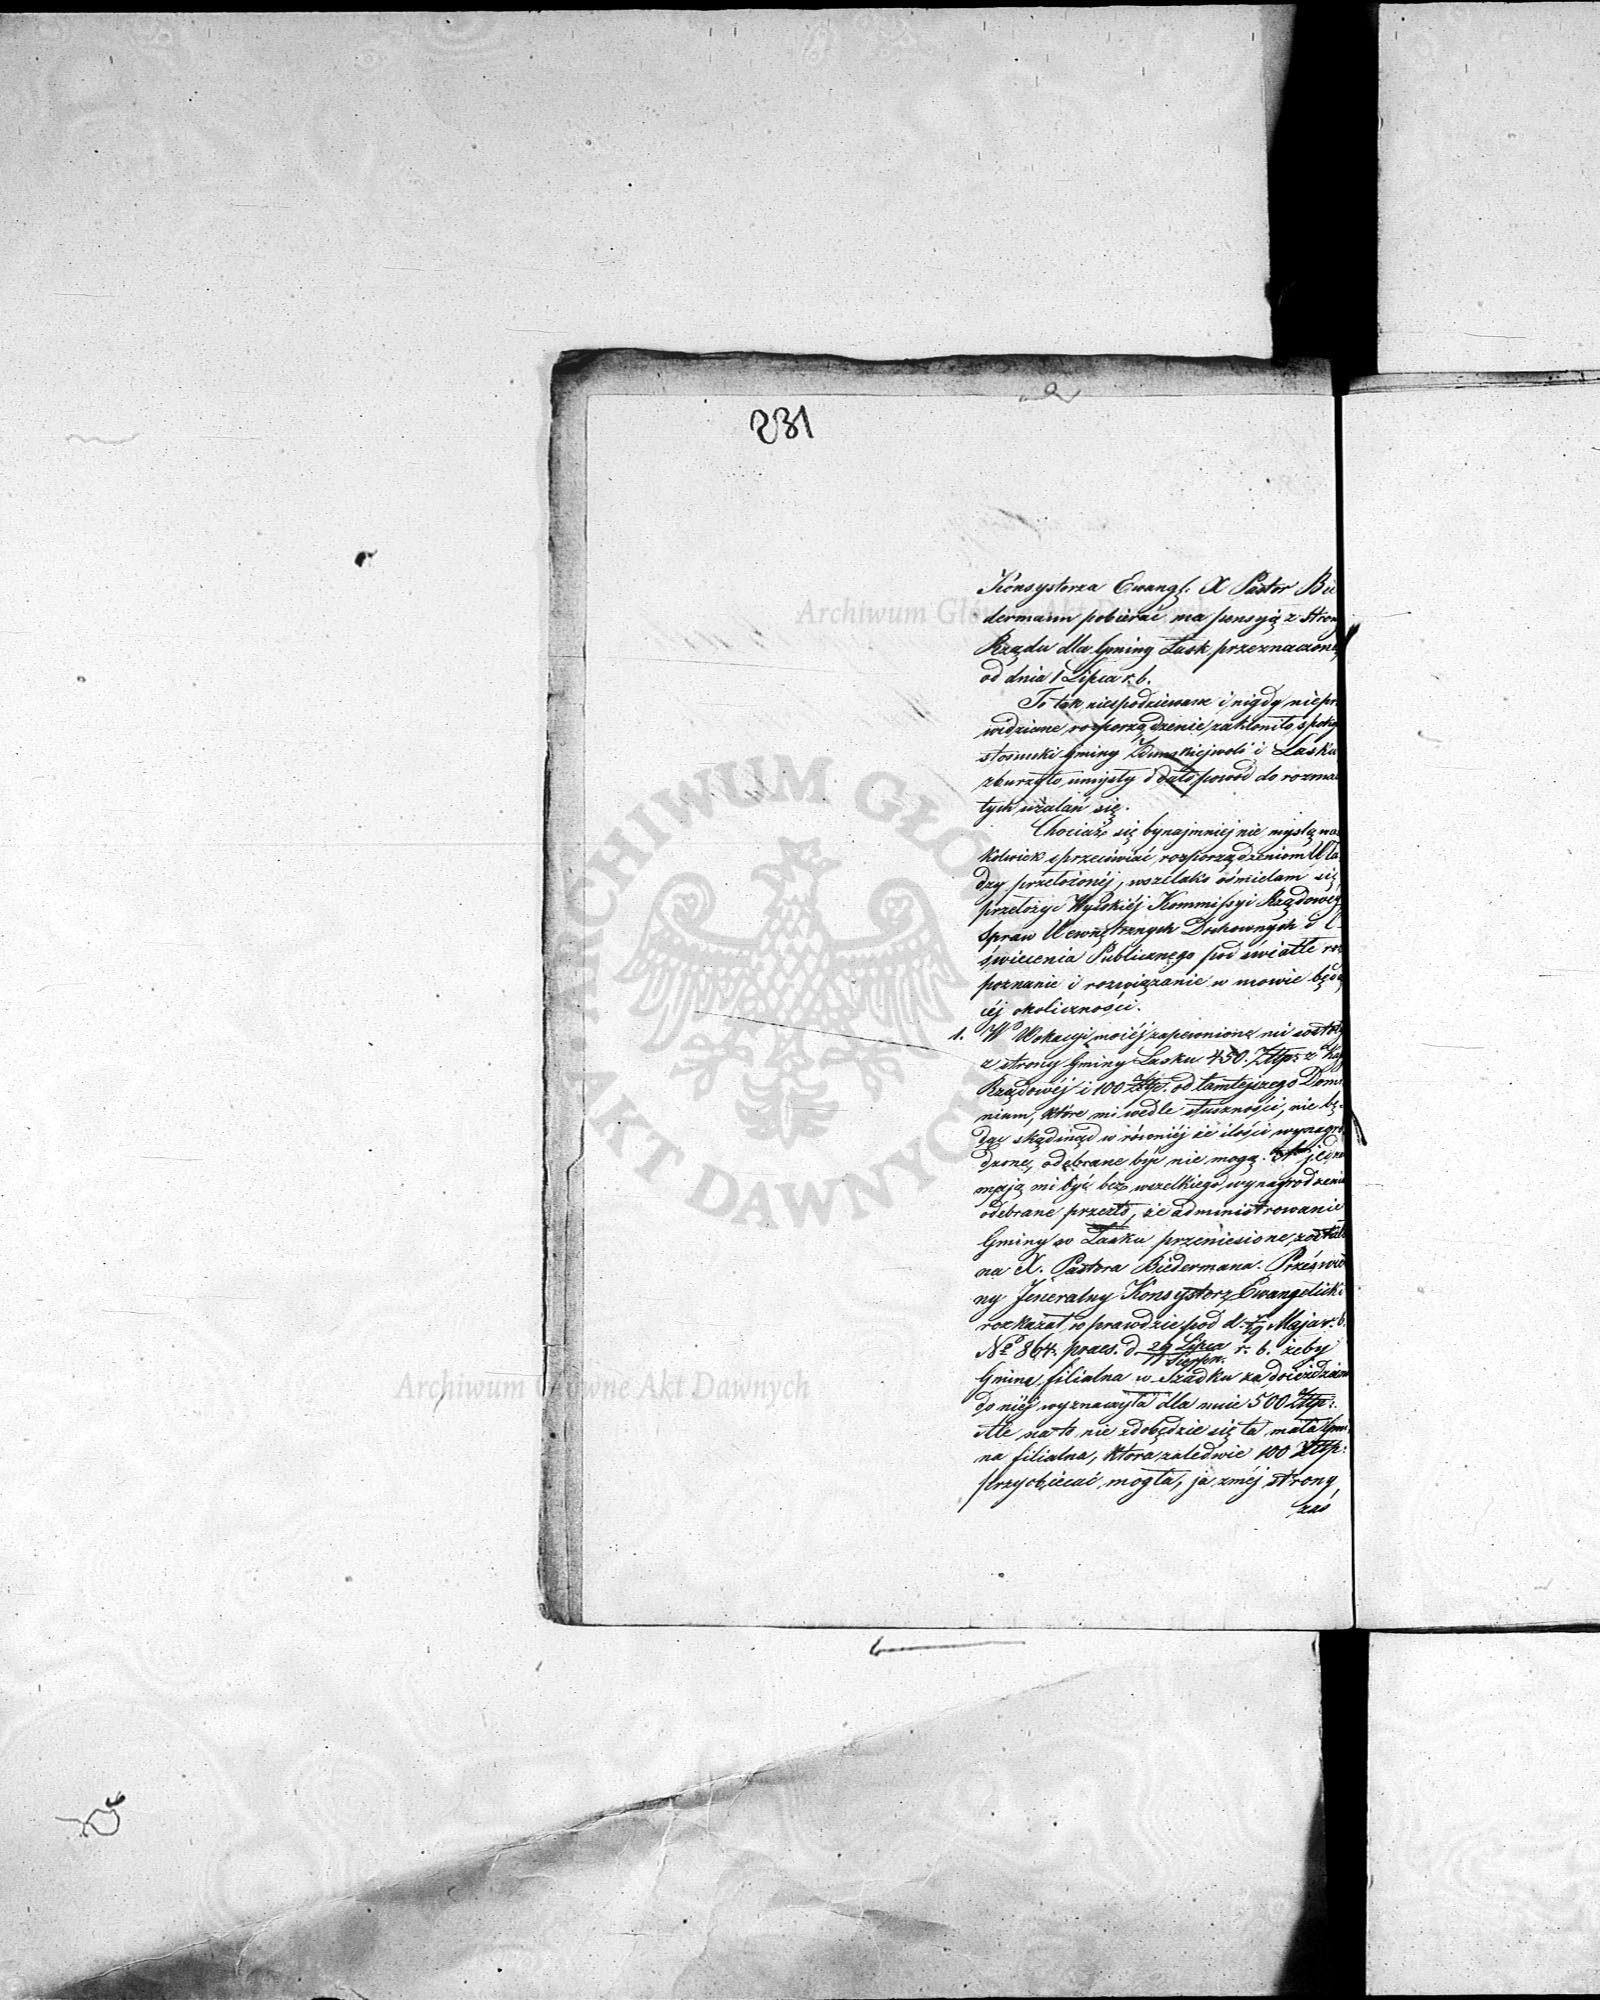 231
Konsystorza Ewangl. X Pastor Bie
dermann pobierać ma pensyją z stron
Rządu dla Gminy Łask przeznaczoną
od dnia 1 Lipca r. b.
To tak niespodziewane i nigdy niepr
widziane, rozporządzenie, zakłóniło spok
stosunki Gminy Zduńskiejwoli i Łasku
zburzyło umysły i dało powód do rozma
tych użalań się.
Chociaż się bynajmniej nie myślą
kolwiek sprzeciwiać, rozporządzeniom Wła
dzy przełożonéj, wszelako ośmielam się
przełożyć Wysokiéj Kommissyi Rządowéj
Spraw Wewnętrznych Duchownych i O
świecenia Publicznego pod światłe roz
poznanie i rozwiązanie w mowie będą
céj okoliczności.
1. W Wokacyi mojéj zapewnione mi został
z strony Gminy Łasku 450. Złlp: z Kas
Rządowéj i 100 Złlp. od tamtejszego Domi
nium, które mi wedle słuszności, nie bę-
dąc skądinąd w równiéj że ilości wynagro
dzone, odebrane być nie mogą. jedna
mają mi być bez wszelkiego wynagrodzenia
odebrane przezto, że administrowanie
Gminy w Łasku przeniesione, został
na X. Pastora Biedermana. Prześwie
ny Jeneralny Konsystorz Ewangelicki
rozkazał w prawdzie pod d. 7/19 Maja r. b.
No 864. praes. d 29 Lipca / 11 Sierpn. r. b. żeby
Gmina filialna w Szadku za dojeżdzanie
do niéj wyznaczyła dla mnie 500 Złlp:
Ale na to nie zdobędzie się ta mała Gmi
na filialna, która zaledwie 100 Złlp:
przyobiecać mogła, ja zméj strony
zaś
Archiwum Główne Akt Dawnych
ARCHIWUM GŁÓWNE AKT DAWNYCH
Archiwum Główne Akt Dawnych